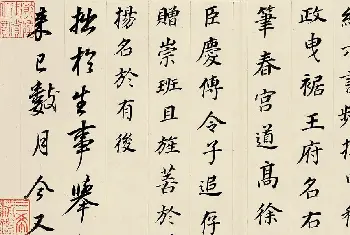 政曳裾王府名右
筆春宮道高徐
臣慶傳令子追存
贈崇班且旌善於
揚名於有後
拙於生事舉
来已數月今又